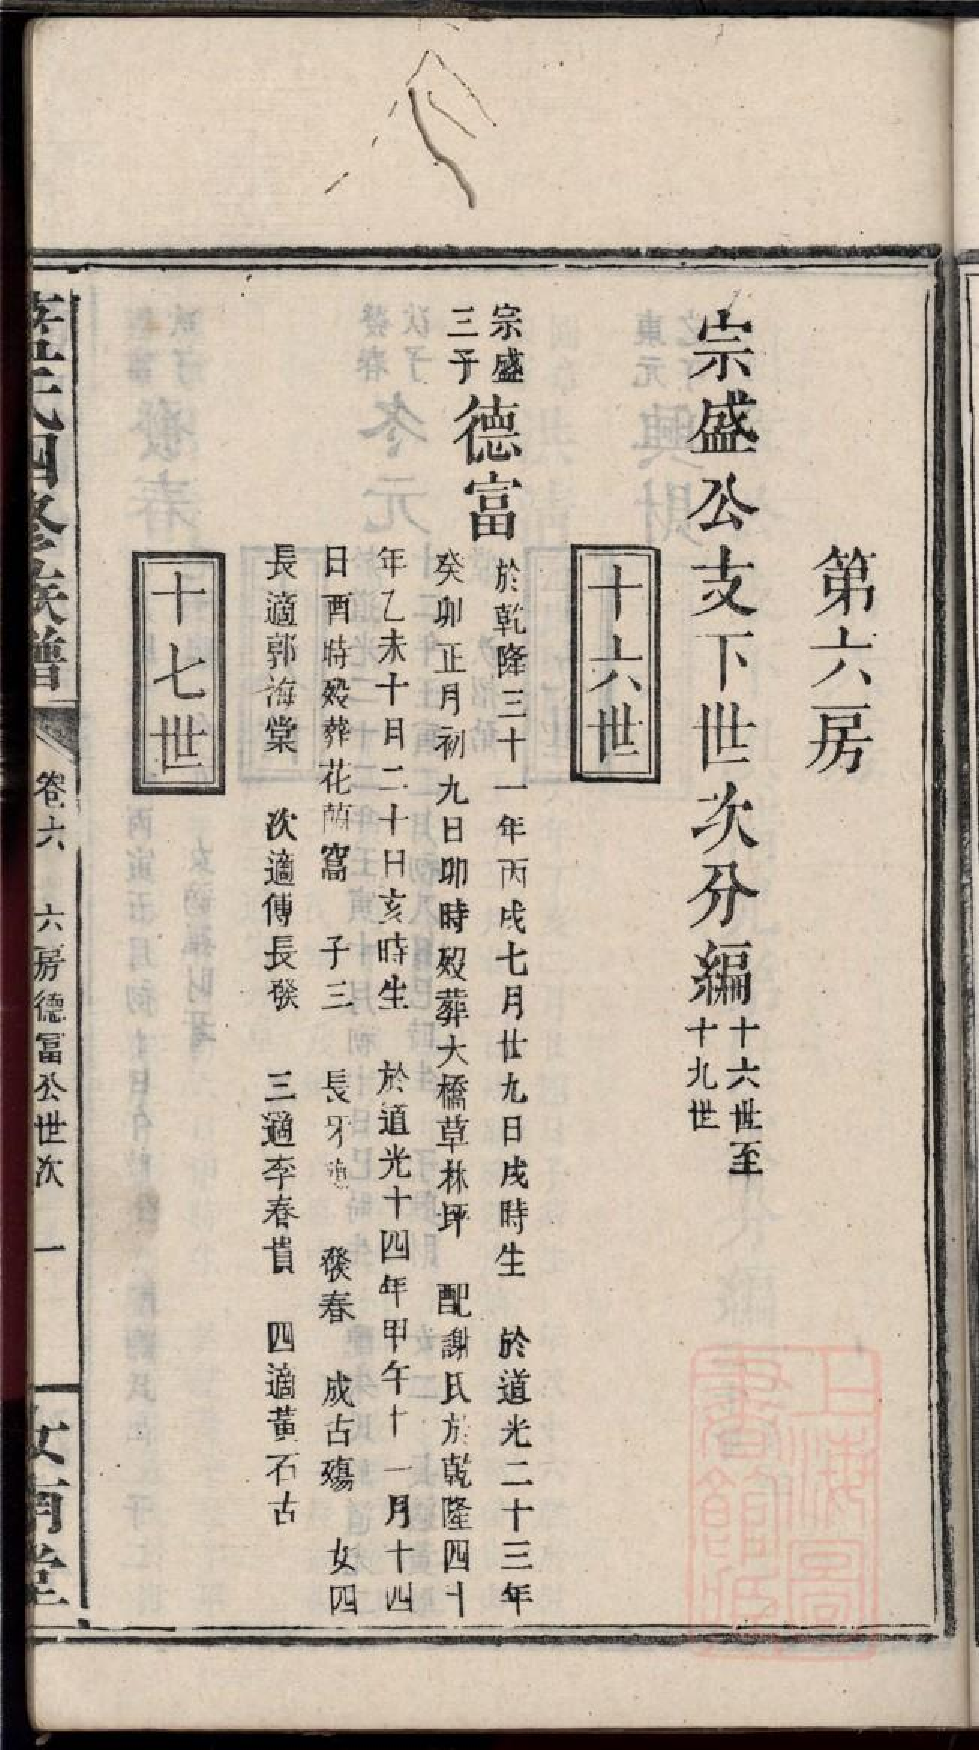 第六房
宗盛公支下世次分編
十六世至
十九世
十六世
宗盛
三子
德富
於乾隆三十一年丙戌七月廿九日戌時生 於道光二十三年
癸卯正月初九日卯時歿葬大橋草林坪 配謝氏於乾隆四十
年乙未十月二十日亥時生 於道光十四年甲午十一月十四
日酉時歿葬花蘭窩 子三 長牙 發春 成古殤 女四
長適郭海棠 次適傅長發 三適李春貴 四適黃石古
十七世
氏四修族譜
卷六 六房德富公世次 一
汝南堂
上海圖書館藏